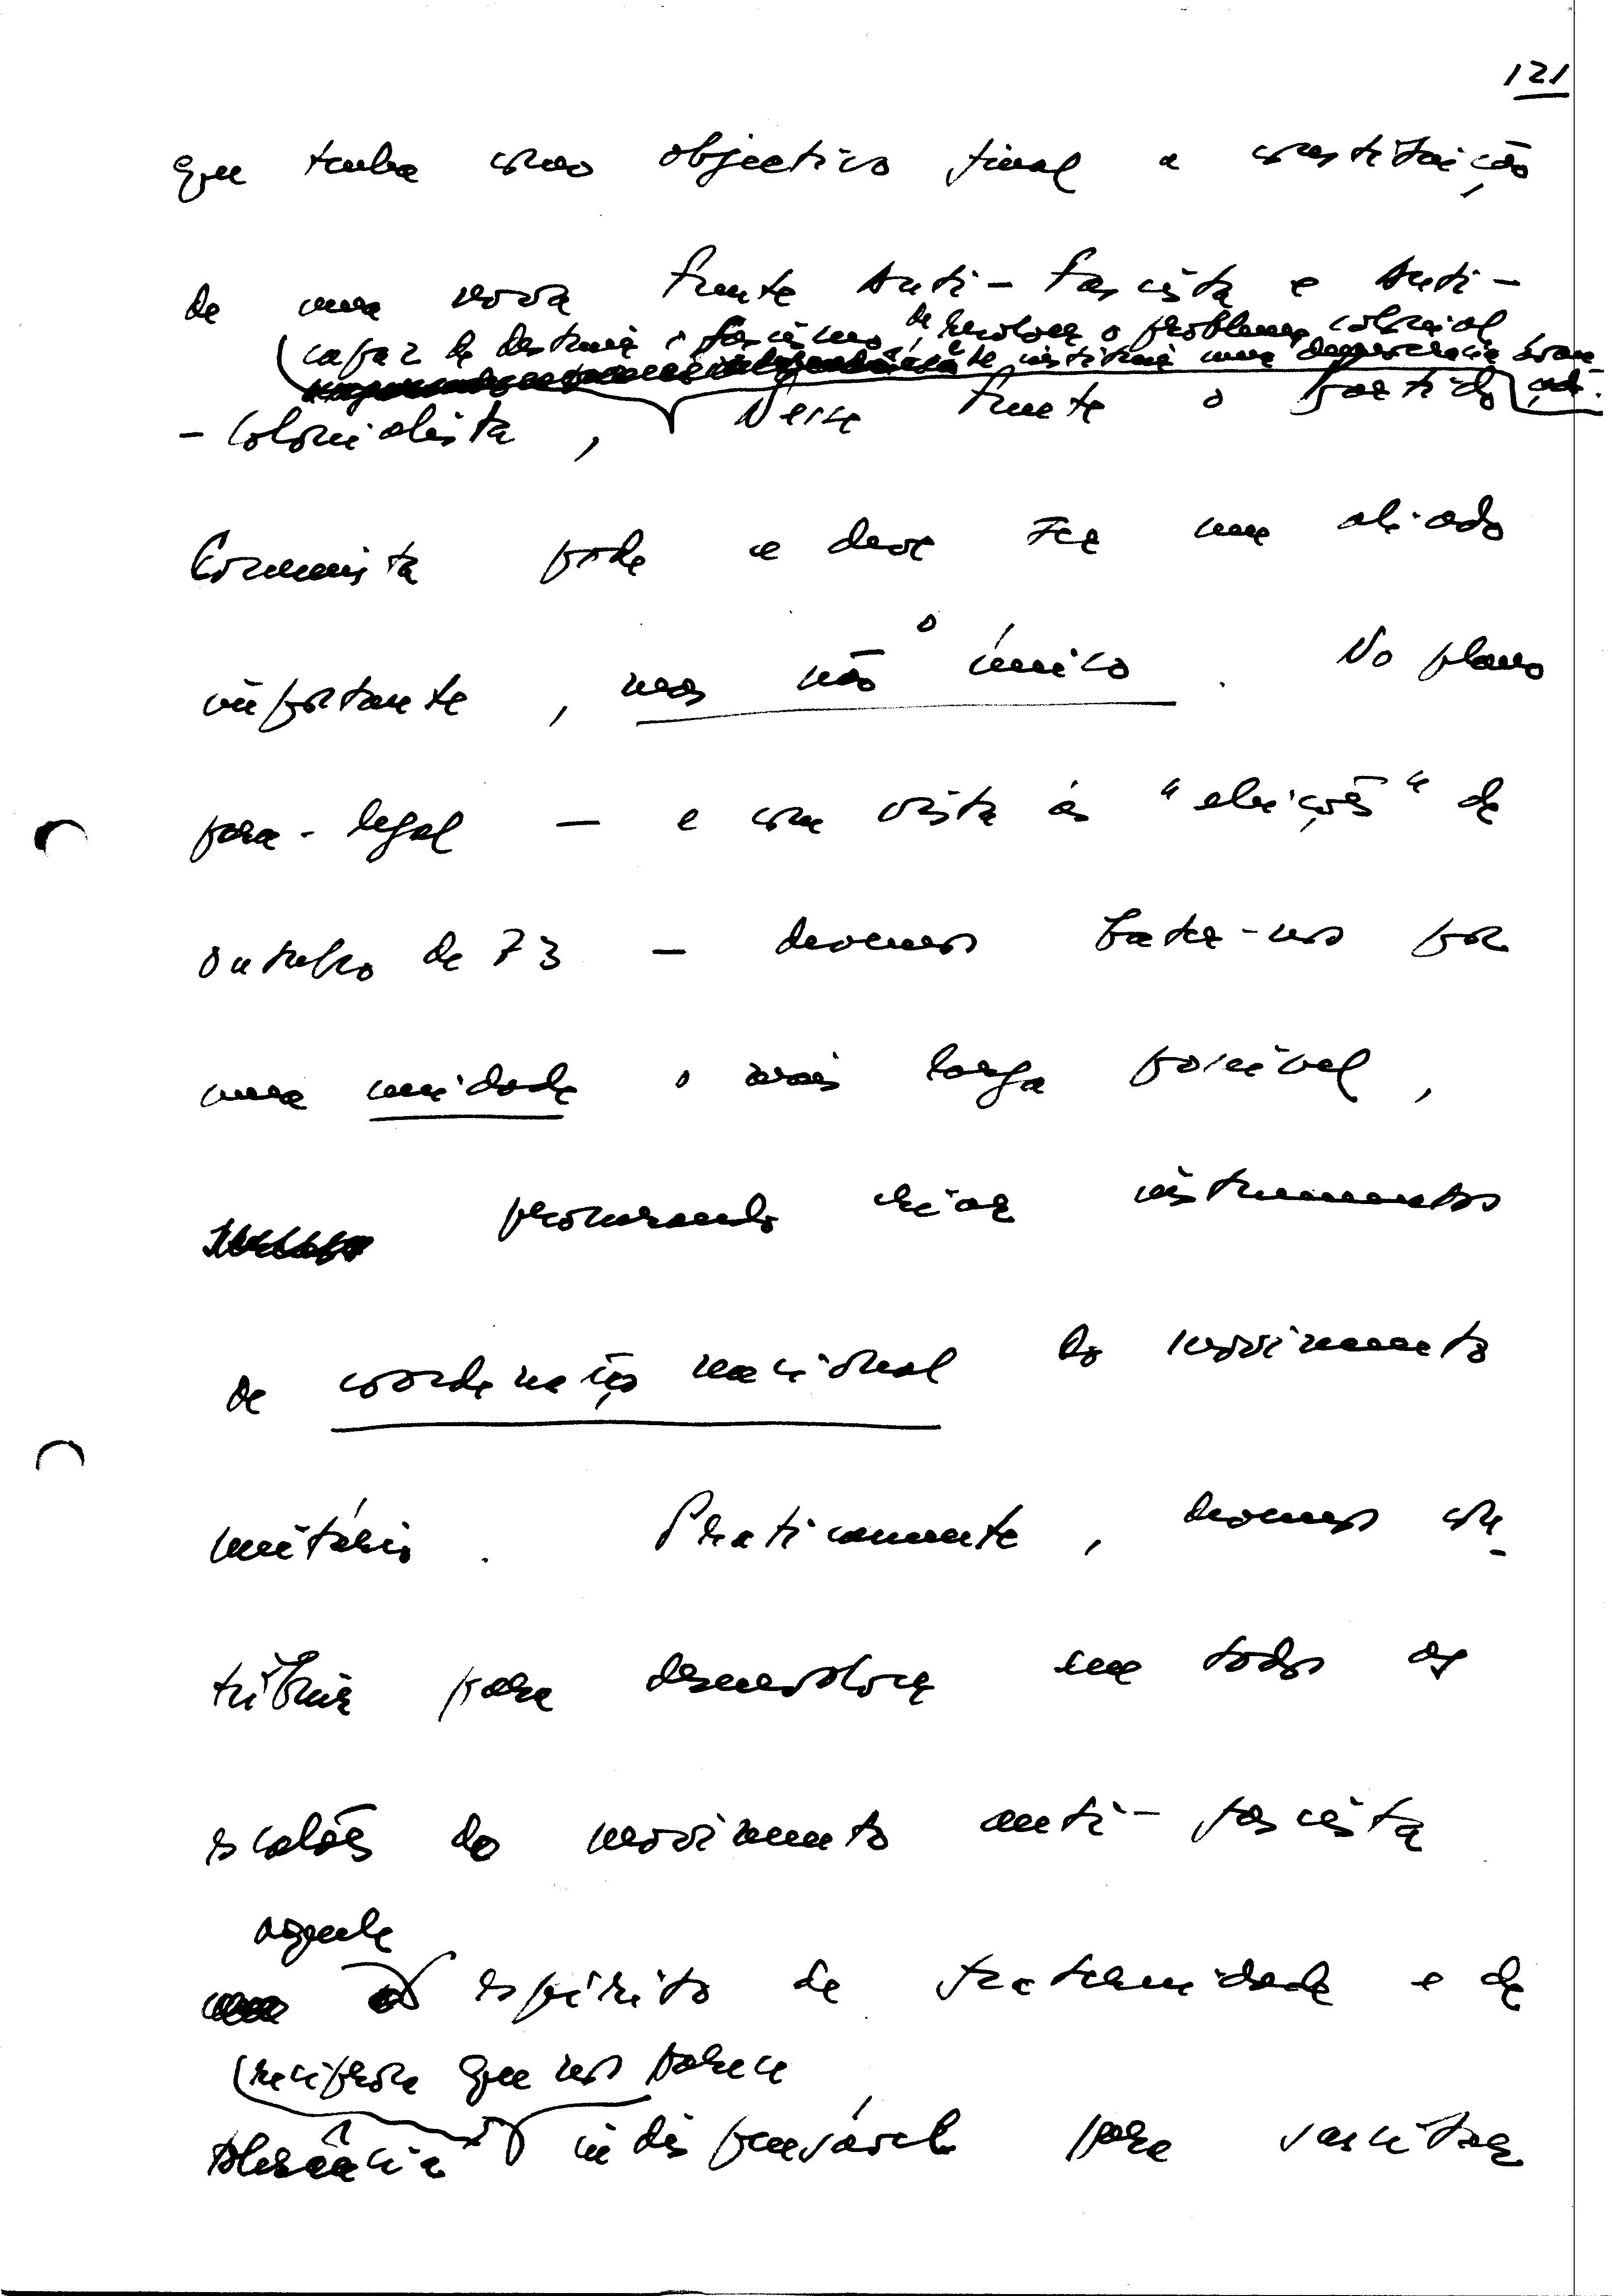 121
que tenha como objectivo final a constituição
de uma nova Frente Anti-Fascista e Anti-
capaz de destruir o fascismo, de resolver o problema colonial
e de instituir uma democracia avan-
çada.
-Colonialista, Nessa Frente o Partido
Comunista pode e deve ser um aliado
importante, mas não o único. No plano
para-legal — e com vista às "eleições" de
Outubro de 73 — devemos bater-nos por
uma unidade o mais larga possível,
procurando criar instrumentos
de coordenação nacional do movimento
unitário. Praticamente, devemos con-
tribuir para desenvolver em todos os
escalões do movimento anti-fascista
aquele
espírito de fraternidade e de
recíproca que nos parece
tolerância indispensável para suscitar